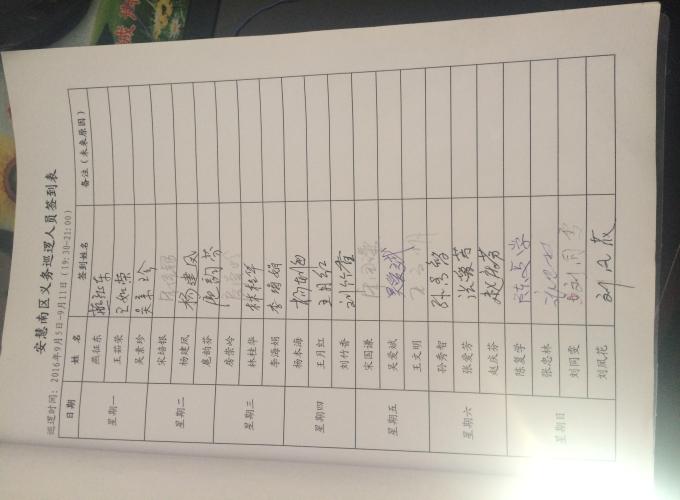 安慧南区义务巡逻人员签到表
巡逻时间：2016年9月5日-9月11日（19:30-21:00）
日期 姓 名 签到姓名 备注（未来原因）
星期一 燕征东 燕征东
王茹荣 王如荣
吴素珍 吴素珍
星期二 宋培根 宋培根
杨建凤 杨建凤
鹿韵芬 鹿韵芬
星期三 房崇岭
林桂华 林桂华
李海娟 李海娟
星期四 杨本海
王月红 王月红
刘竹香 刘竹香
星期五 宋国谦
吴爱斌 吴爱斌
王文明 王文明
星期六 孙秀智 孙秀智
张爱芳 张爱芳
赵庆芬 赵庆芳
星期日 陈复学 陈复学
张忠林
刘同雯
刘凤花 刘凤花